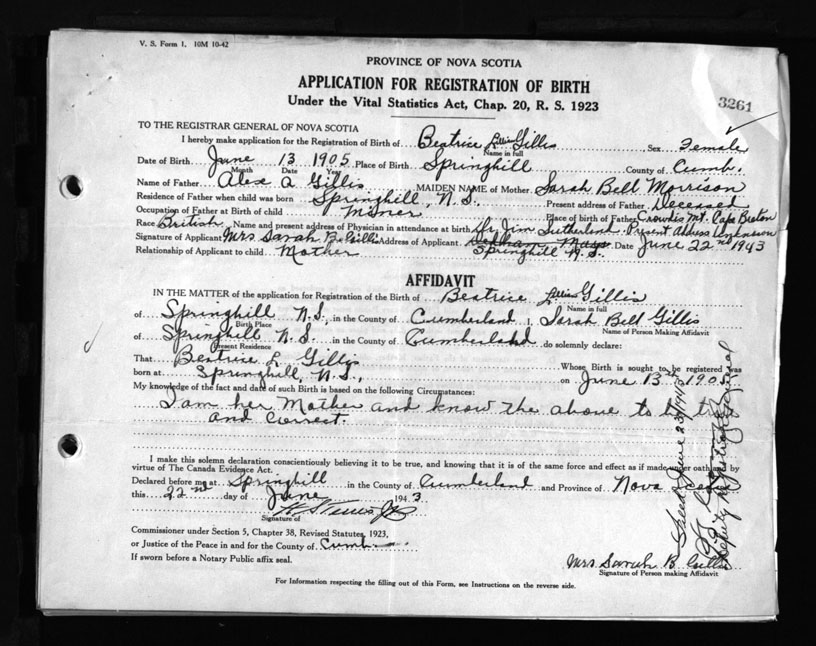 V. S. Form 1, 10M 10-42
PROVINCE OF NOVA SCOTIA
APPLICATION FOR REGISTRATION OF BIRTH
Under the Vital Statistics Act, Chap. 20, R. S. 1923
3261
TO THE REGISTRAR GENERAL OF NOVA SCOTIA
I hereby make application for the Registration of Birth of Beatrice Lillian Gillis Sex Female
Name in full
Date of Birth June 13 1905 Place of Birth Springhill County of Cumb.
Month Date Year
Name of Father Alex A Gillis MAIDEN NAME of Mother Sarah Bell Morrison
Residence of Father when child was born Springhill, N.S. Present address of Father Deceased
Occupation of Father at Birth of child Miner Place of birth of Father Mt. Cape Breton
Race British Name and present address of Physician in attendance at birth Dr. Jim Sutherland. Present Address Unknown
Signature of Applicant Mrs Sarah B. Gillis Address of Applicant Dedham Mass Date June 22nd 1943
Relationship of Applicant to child Mother Springhill N.S.
AFFIDAVIT
IN THE MATTER of the application for Registration of the Birth of Beatrice Lillian Gillis
Name in full
of Springhill N.S., in the County of Cumberland I, Sarah Bell Gillis
Birth Place Name of Person Making Affidavit
of Springhill N.S. in the County of Cumberland do solemnly declare:
Present Residence
That Beatrice L Gillis Whose Birth is sought to be registered was
born at Springhill, N.S., on June 13th 1905
My knowledge of the fact and date of such Birth is based on the following Circumstances:
I am her Mother and know the above to be true
and correct.
I make this solemn declaration conscientiously believing it to be true, and knowing that it is of the same force and effect as if made under oath and by
virtue of The Canada Evidence Act.
Declared before me at Springhill in the County of Cumberland and Province of Nova Scotia
this 22nd day of June 1943
Signature of
Commissioner under Section 5, Chapter 38, Revised Statutes, 1923,
or Justice of the Peace in and for the County of Cumb.
If sworn before a Notary Public affix seal.
Mrs. Sarah B. Gillis
Signature of Person making Affidavit
For Information respecting the filling out of this Form, see Instructions on the reverse side.
June 23/1943
Deputy Registrar General